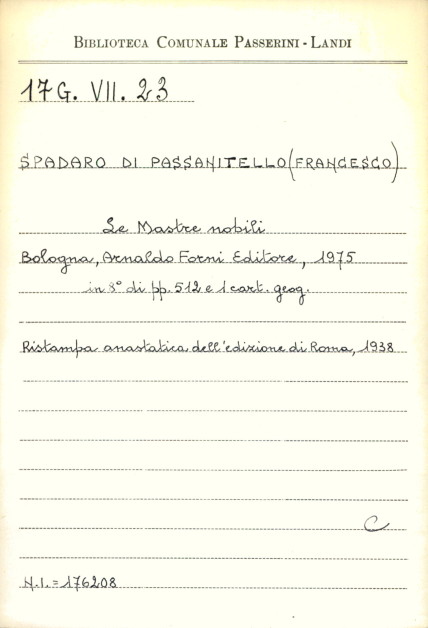 BIBLIOTECA COMUNALE PASSERINI-LANDI
17 G. VII. 23
SPADARO DI PASSANITELLO (FRANCESCO)
Le Mastre nobili
Bologna, Arnaldo Forni Editore, 1975
in 8° di pp. 512 e 1 cart. geog.
Ristampa anastatica dell'edizione di Roma, 1938
C
N.I. = 176208